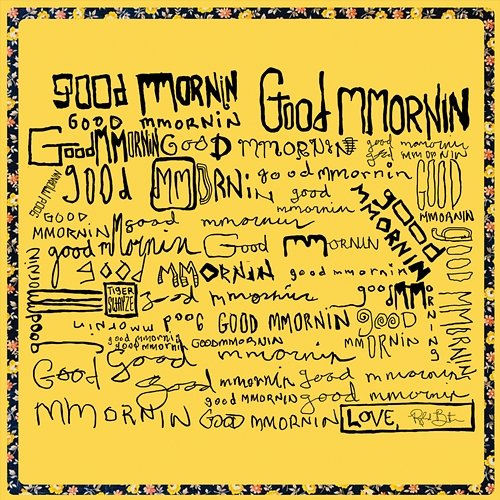 good MMORNiN
Good MMORNIN
GOOD MMORNIN
Good MMORNIN
GooD MMORNIN
good mmornin
good MMORNIN
good MMORNiN
good mmornin
GOOD MMORNIN
good mmornin
GOOD MMORNIN
GOOD MMORNIN
good mmornin
good MMORNIN
good mMornin
Good MMORNIN
GOOD MMORNIN
good MMORNIN
good mmornin
good mmornin
TiGER
SHYZE
good mmornin
good MMORNING
good mmornin
GOOD MMORNIN
good MMORNIN
good mmornin
good mmornin
GOODMMORNIN
good mmornin
Good MMORNIN
good mmornin
good mmornin
good MMORNIN
good mmornin
Good MMORNIN
LOVE,